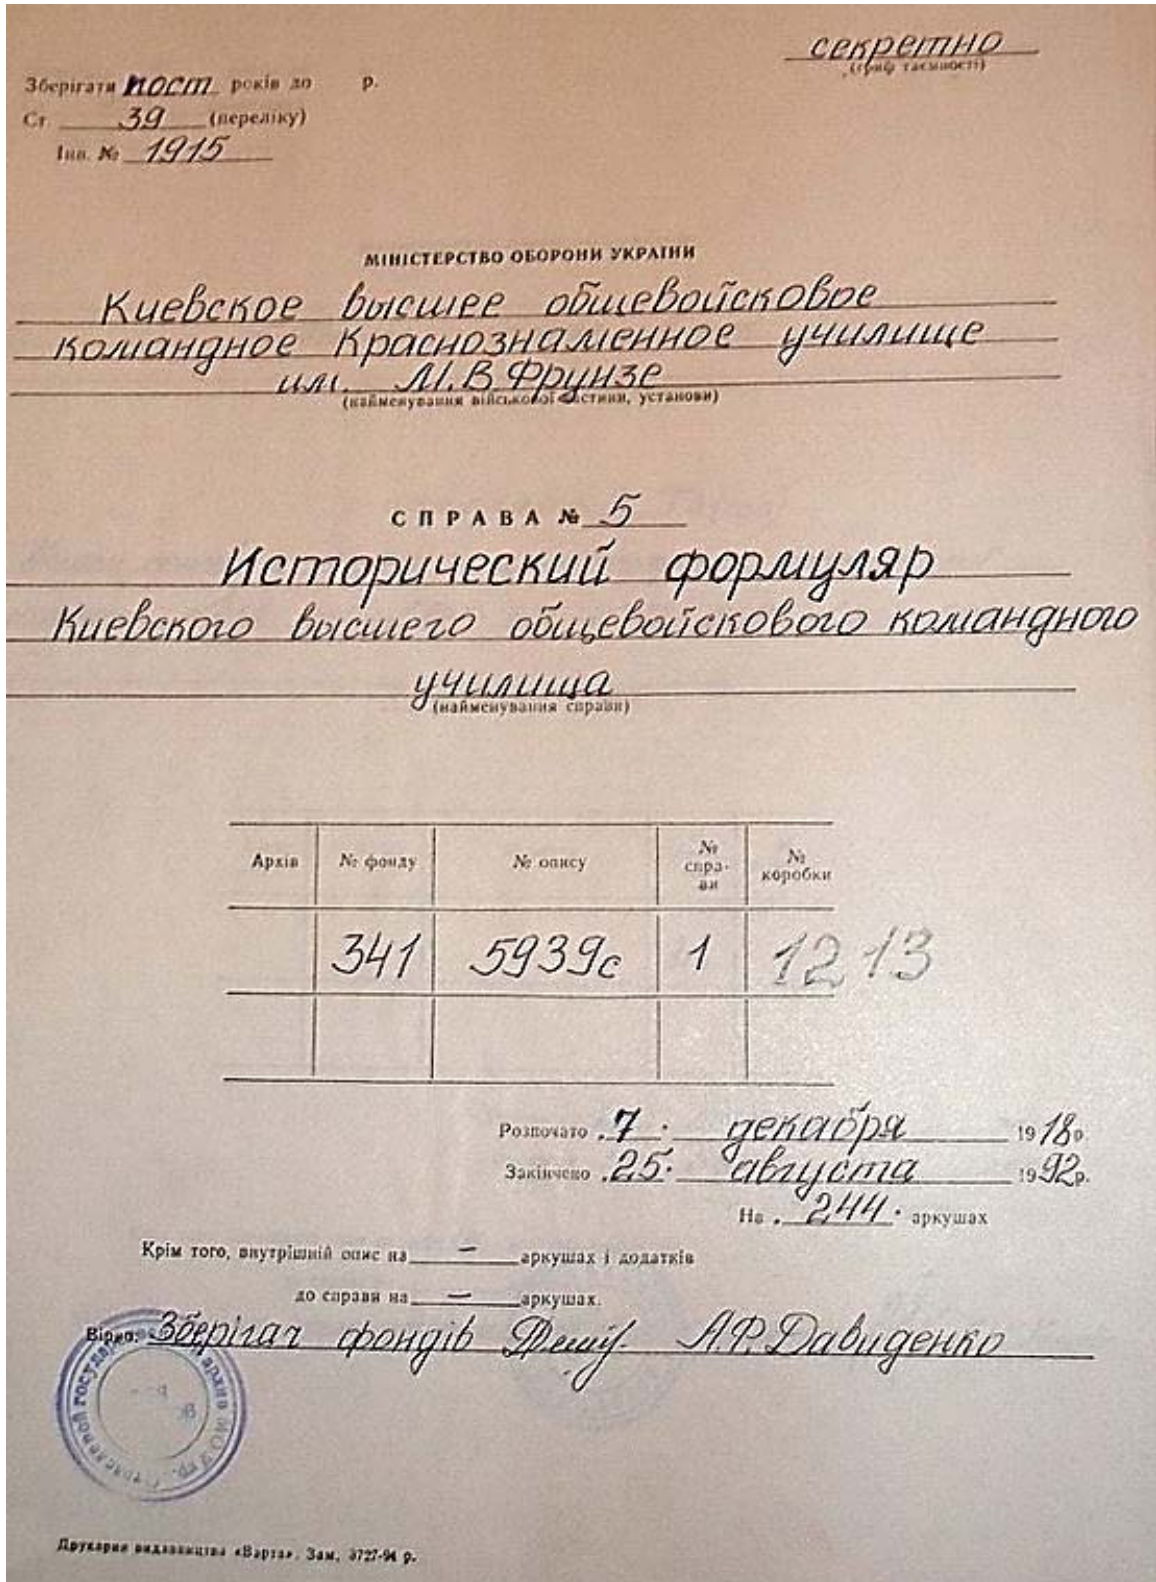 секретно
(гриф таємності)
Зберігати пост років до р.
Ст. 39 (переліку)
Інв. № 1915
МІНІСТЕРСТВО ОБОРОНИ УКРАЇНИ
Киевское высшее общевойсковое
командное Краснознаменное училище
им. М.В Фрунзе
(найменування військової частини, установи)
СПРАВА № 5
Исторический формуляр
Киевского высшего общевойскового командного
училища
(найменування справи)
Архів № фонду № опису № спра- ви № коробки
341 5939с 1 12 13
Розпочато 7. декабря 1918р.
Закінчено 25. августа 1992р.
На 244. аркушах
Крім того, внутрішній опис на — аркушах і додатків
до справи на — аркушах.
Вірно: Зберігач фондів А.Ф.Давиденко
архив МО Укр.
Друкарня видавництва «Варта». Зам. 3727-94 р.